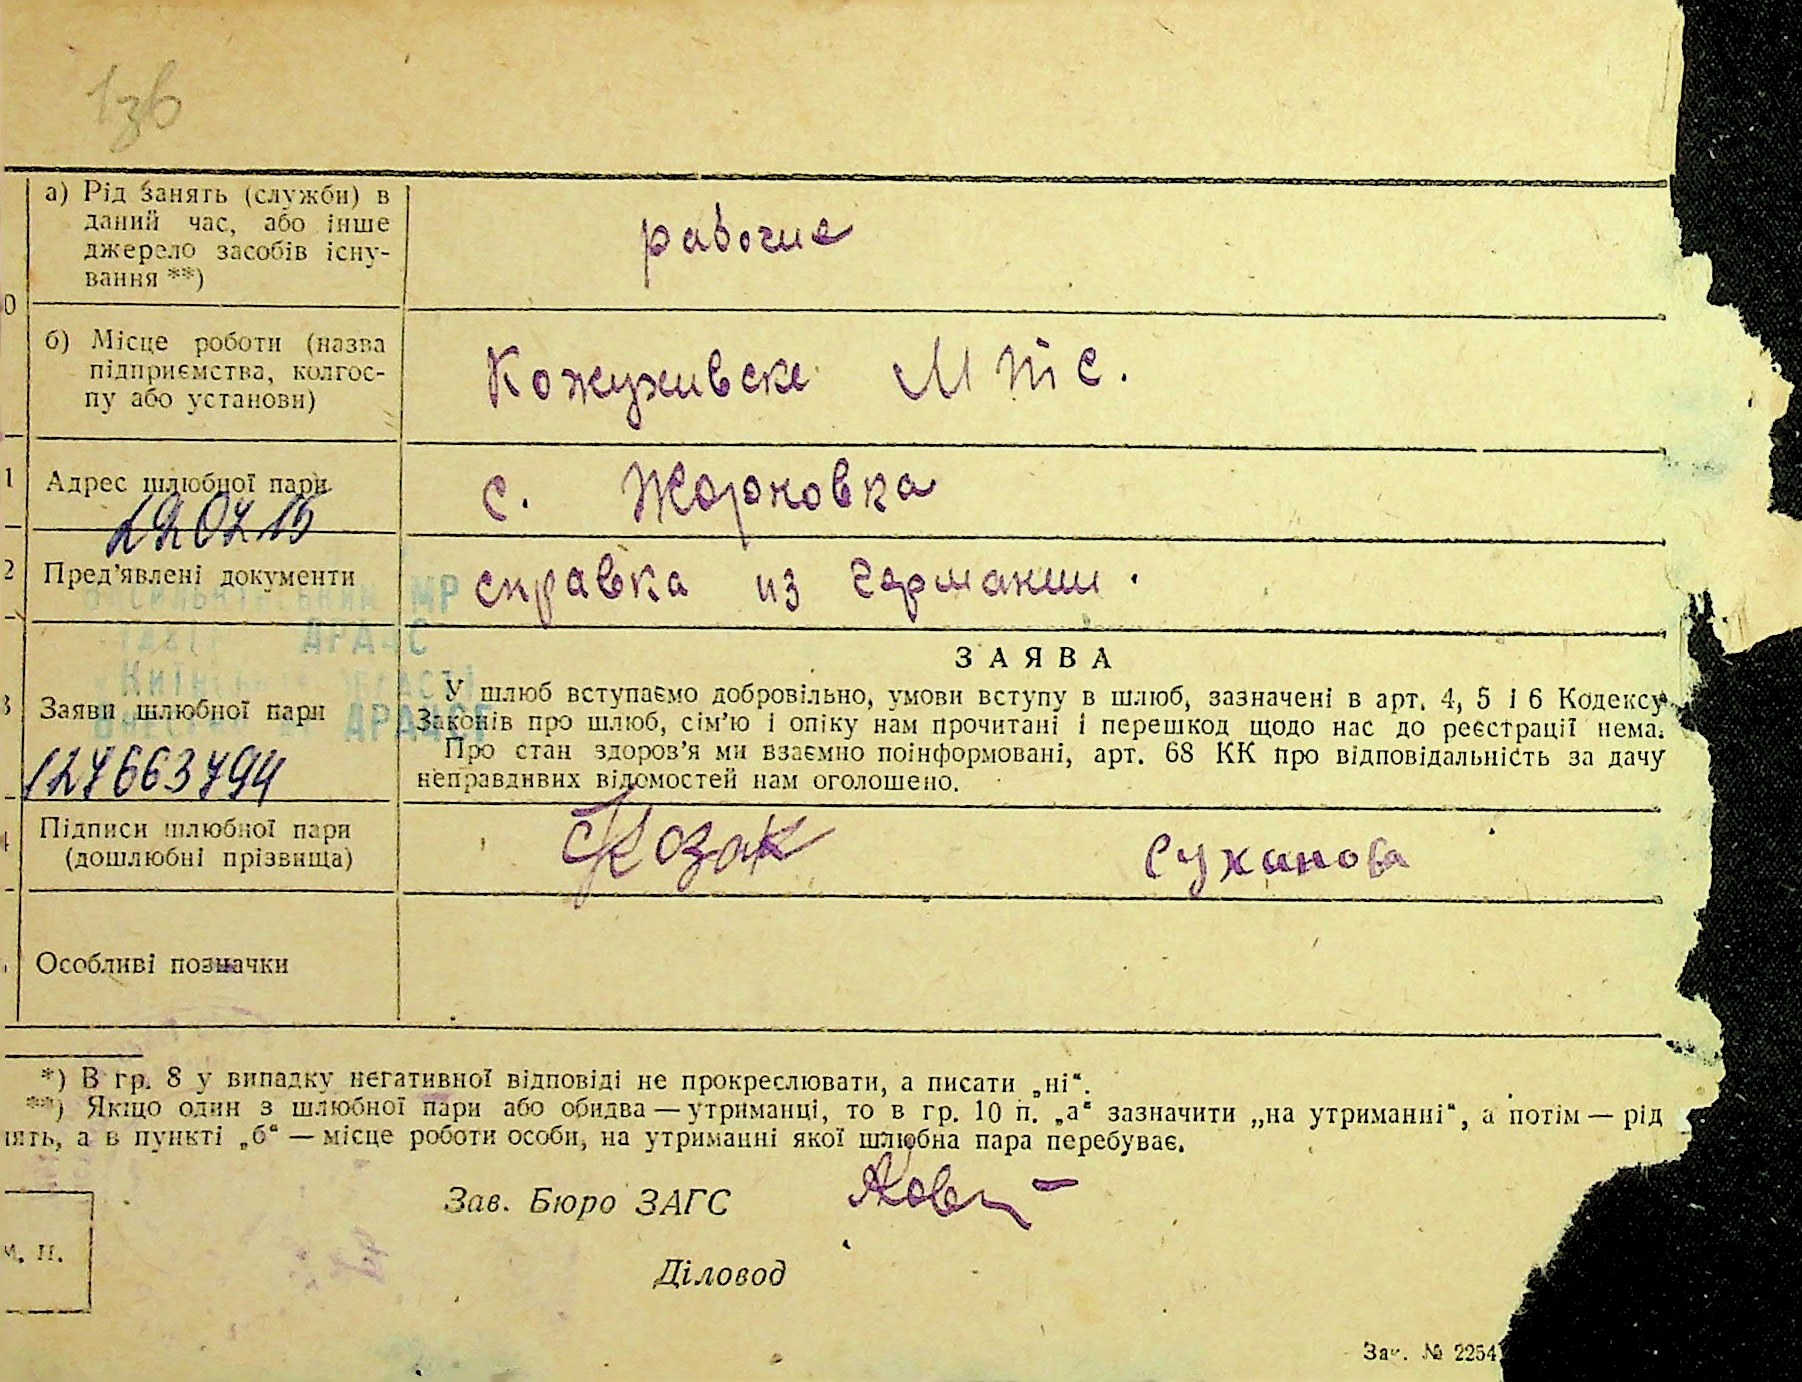 136
а) Рід занять (служби) в
даний час, або інше
джерело засобів існу-
вання **)
рабочие
0
б) Місце роботи (назва
підприємства, колгос-
пу або установи)
Кожуживске МТС.
1
Адрес шлюбної пари
с. Жорновка
290715
2
Пред'явлені документи
справка из германии.
МР
ДРАЦС
3
Заяви шлюбної пари
ЗАЯВА
У шлюб вступаємо добровільно, умови вступу в шлюб, зазначені в арт. 4, 5 і 6 Кодексу
Законів про шлюб, сім'ю і опіку нам прочитані і перешкод щодо нас до реєстрації нема.
Про стан здоров'я ми взаємно поінформовані, арт. 68 КК про відповідальність за дачу
неправдивих відомостей нам оголошено.
127663794
4
Підписи шлюбної пари
(дошлюбні прізвища)
Козак Суханова
Особливі позначки
*) В гр. 8 у випадку негативної відповіді не прокреслювати, а писати „ні“.
**) Якщо один з шлюбної пари або обидва — утриманці, то в гр. 10 п. „а“ зазначити „на утриманні“, а потім — рід
нять, а в пункті „б“ — місце роботи особи, на утриманні якої шлюбна пара перебуває.
Зав. Бюро ЗАГС
М. П.
Діловод
Зак. № 2254